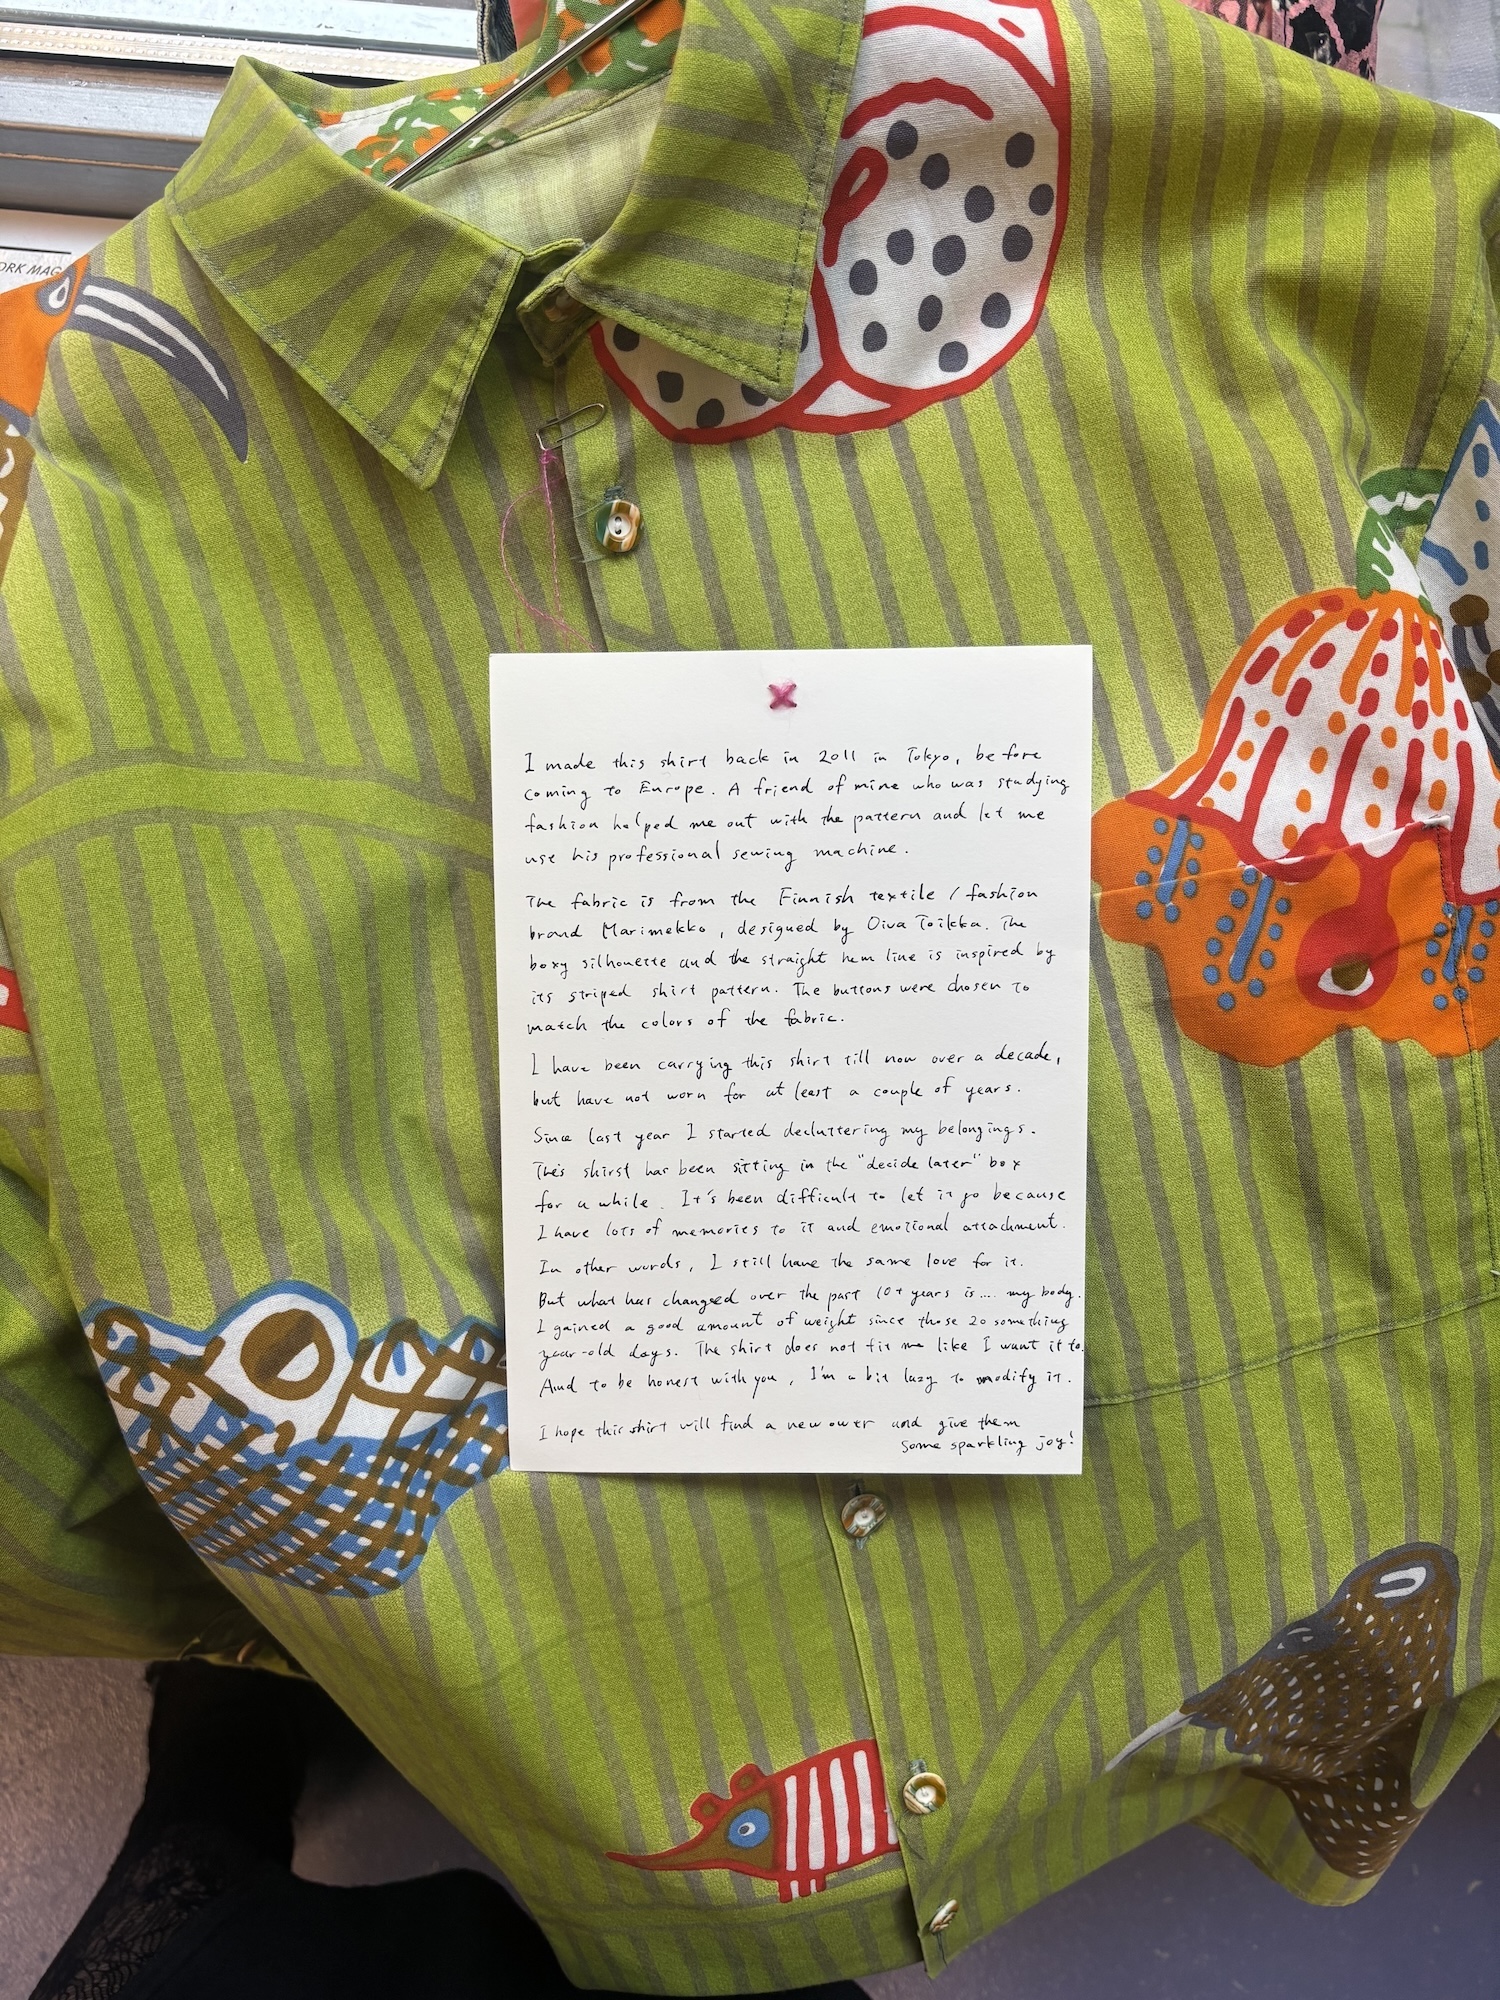 ORK MAG
I made this shirt back in 2011 in Tokyo, before
coming to Europe. A friend of mine who was studying
fashion helped me out with the pattern and let me
use his professional sewing machine.
The fabric is from the Finnish textile / fashion
brand Marimekko, designed by Oiva Toikka. The
boxy silhouette and the straight hem line is inspired by
its striped shirt pattern. The buttons were chosen to
match the colors of the fabric.
I have been carrying this shirt till now over a decade,
but have not worn for at least a couple of years.
Since last year I started decluttering my belongings.
This shirst has been sitting in the "decide later" box
for a while. It's been difficult to let it go because
I have lots of memories to it and emotional attachment.
In other words, I still have the same love for it.
But what has changed over the past 10+ years is.... my body.
I gained a good amount of weight since those 20 something
year-old days. The shirt does not fit me like I want it to.
And to be honest with you, I'm a bit lazy to modify it.
I hope this shirt will find a new ower and give them
some sparkling joy!